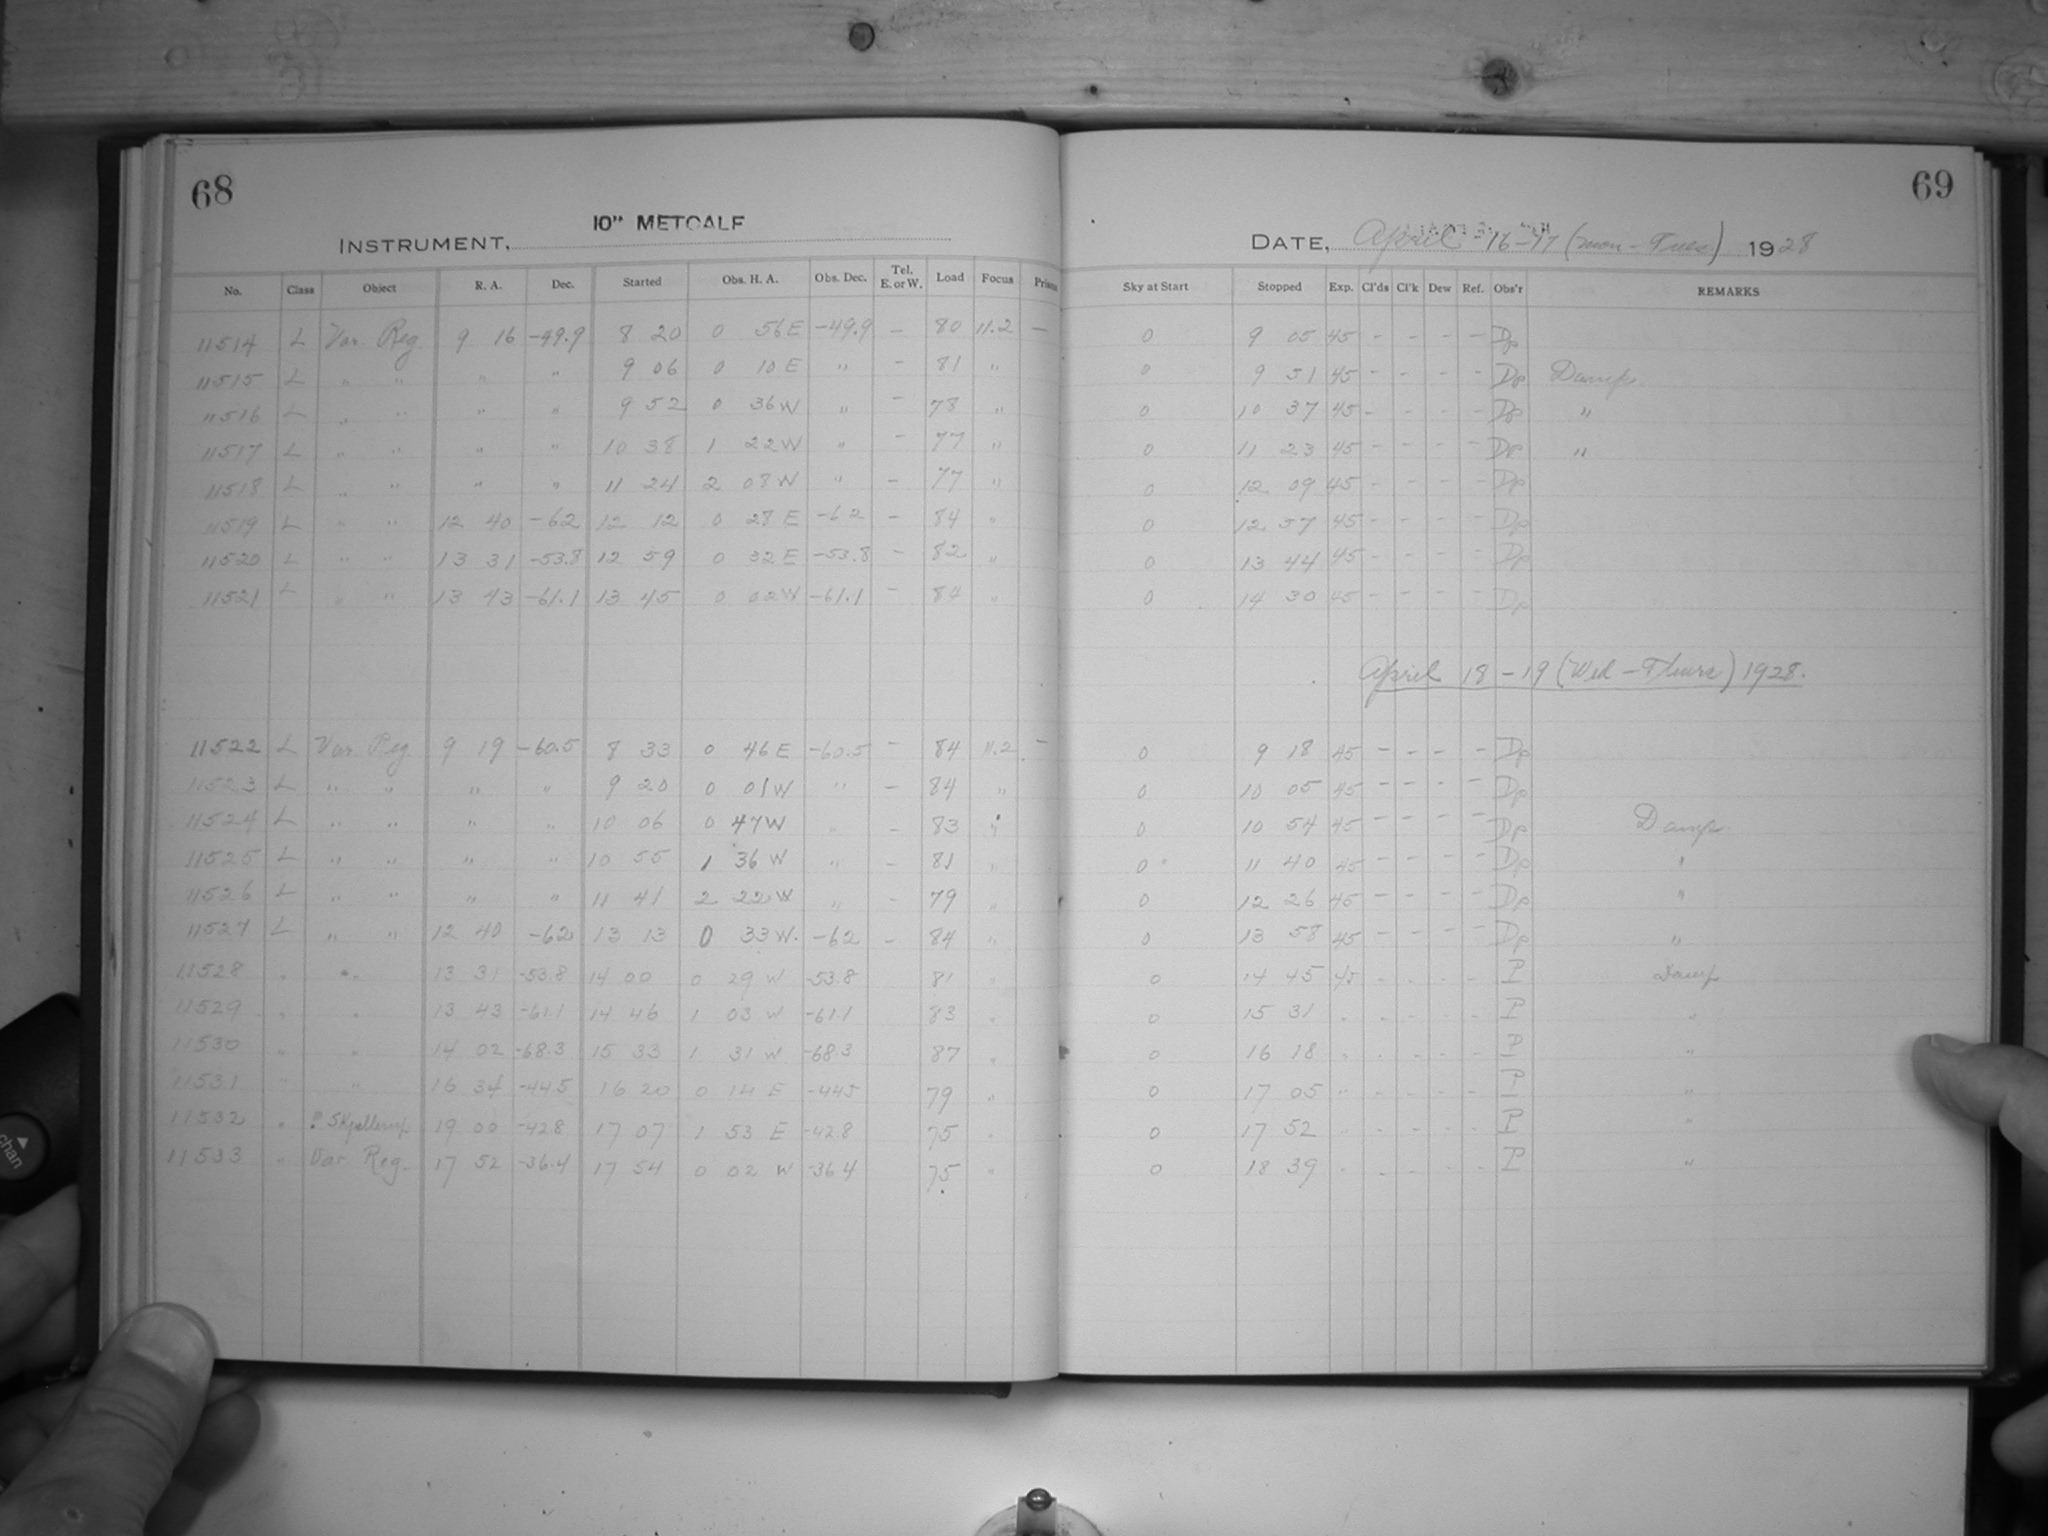 68
INSTRUMENT, 10" METCALF
No. Class Object R. A. Dec. Started Obs. H. A. Obs. Dec. Tel. E. or W. Load Focus Prism
11514 L Var. Reg 9 16 -49.9 8 20 0 56 E -49.9 - 80 11.2 -
11515 L " " " " 9 06 0 10 E " - 81 "
11516 L " " " " 9 52 0 36 W " - 78 "
11517 L " " " " 10 38 1 22 W " - 77 "
11518 L " " " " 11 24 2 08 W " - 77 "
11519 L " " 12 40 -62 12 12 0 28 E -62 - 84 "
11520 L " " 13 31 -53.8 12 59 0 32 E -53.8 - 82 "
11521 L " " 13 43 -61.1 13 45 0 02 W -61.1 - 84 "
11522 L Var Reg 9 19 -60.5 8 33 0 46 E -60.5 - 84 11.2 -
11523 L " " " " 9 20 0 01 W " - 84 "
11524 L " " " " 10 06 0 47 W " - 83 "
11525 L " " " " 10 55 1 36 W " - 81 "
11526 L " " " " 11 41 2 22 W " - 79 "
11527 L " " 12 40 -62 13 13 0 33 W. -62 - 84 "
11528 " " 13 31 -53.8 14 00 0 29 W -53.8 81 "
11529 " " 13 43 -61.1 14 46 1 03 W -61.1 83 "
11530 " " 14 02 -68.3 15 33 1 31 W -68.3 87 "
11531 " " 16 34 -44.5 16 20 0 14 E -44.5 79 "
11532 " 19 00 -42.8 17 07 1 53 E -42.8 75 "
11533 " Var Reg. 17 52 -36.4 17 54 0 02 W -36.4 75 "
69
DATE, April 16-17 (Mon-Tues) 1928
Sky at Start Stopped Exp. Cl'ds Cl'k Dew Ref. Obs'r REMARKS
0 9 05 45 - - - - Dp
0 9 51 45 - - - - Dp Damp
0 10 37 45 - - - - Dp "
0 11 23 45 - - - - Dp "
0 12 09 45 - - - - Dp
0 12 57 45 - - - - Dp
0 13 44 45 - - - - Dp
0 14 30 45 - - - - Dp
April 18-19 (Wed-Thurs) 1928.
0 9 18 45 - - - - Dp
0 10 05 45 - - - - Dp
0 10 54 45 - - - - Dp Damp
0 11 40 45 - - - - Dp "
0 12 26 45 - - - - Dp "
0 13 58 45 - - - - Dp "
0 14 45 45 - - - - P Damp
0 15 31 " - - - - P "
0 16 18 " - - - - P "
0 17 05 " - - - - P "
0 17 52 " - - - - P "
0 18 39 " - - - - P "
chan